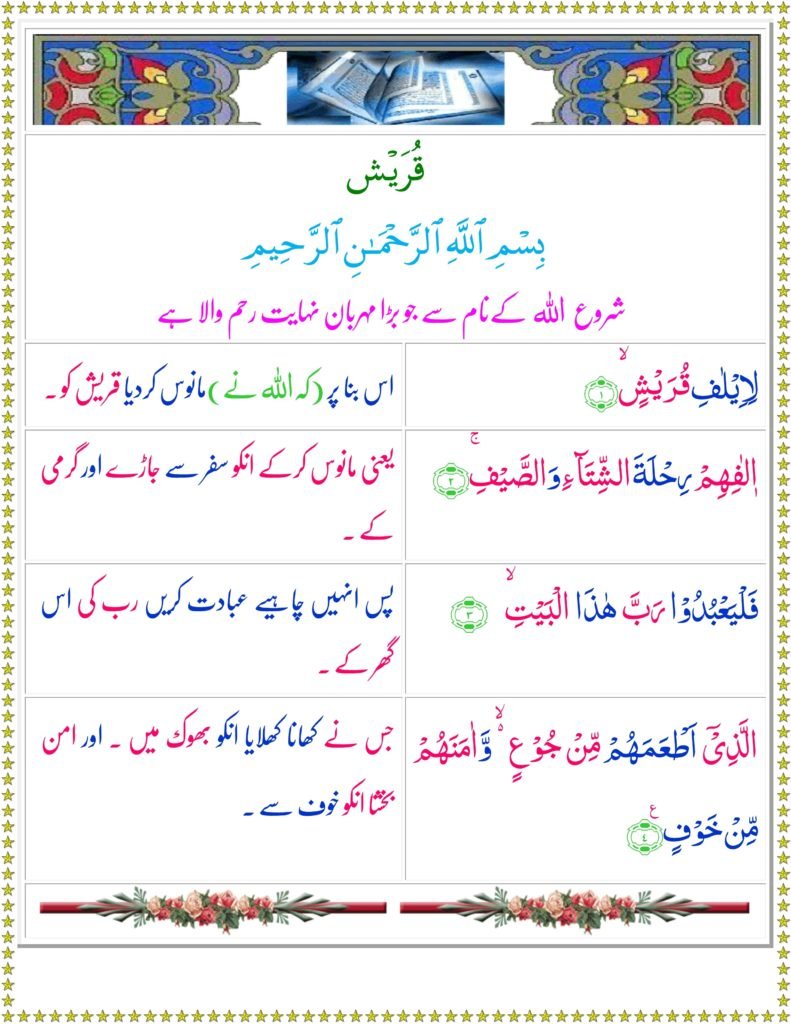 قُرَيْش
بِسْمِ ٱللَّهِ ٱلرَّحْمَـٰنِ ٱلرَّحِيمِ
شروع اللہ کے نام سے جو بڑا مہربان نہایت رحم والا ہے
لِاِیْلٰفِ قُرَیْشٍۙ ۝۱
اس بنا پر (کہ اللہ نے) مانوس کردیا قریش کو۔
اٖلٰفِهِمْ رِحْلَةَ الشِّتَآءِ وَالصَّیْفِۚ ۝۲
یعنی مانوس کرکے انکو سفر سے جاڑے اور گرمی
کے ۔
فَلْیَعْبُدُوْا رَبَّ هٰذَا الْبَیْتِۙ ۝۳
پس انہیں چاہیے عبادت کریں رب کی اس
گھر کے ۔
الَّذِیْۤ اَطْعَمَهُمْ مِّنْ جُوْعٍ ۙ۬ وَّاٰمَنَهُمْ
مِّنْ خَوْفٍ۠ ۝۴
جس نے کھانا کھلایا انکو بھوک میں ۔ اور امن
بخشا انکو خوف سے ۔